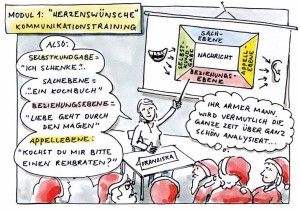 MODUL 1: "HERZENSWÜNSCHE"
KOMMUNIKATIONSTRAINING
ALSO:
SELBSTKUNDGABE=
"ICH SCHENKE..."
SACHEBENE=
"...EIN KOCHBUCH"
BEZIEHUNGSEBENE=
"LIEBE GEHT DURCH
DEN MAGEN"
APPELLEBENE:
"KOCHST DU MIR BITTE
EINEN REHBRATEN?"
SACH-
EBENE
SELBST-
KUND-
GABE
NACHRICHT
APPELL-
EBENE
BEZIEHUNGS-
EBENE
IHR ARMER MANN,
WIRD VERMUTLICH DIE
GANZE ZEIT ÜBER GANZ
SCHÖN ANALYSIERT...
FRANZISKA